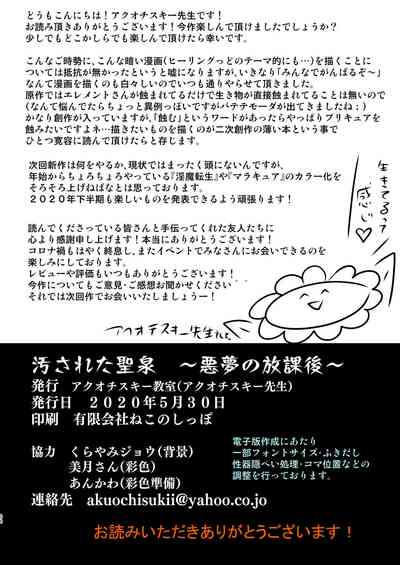 どうもこんにちは！アクオチスキー先生です！
お読み頂きありがとうございます！今作楽しんで頂けましたでしょうか？
少しでもどこかしらでも楽しんで頂けたら幸いです。
こんなご時勢に、こんな暗い漫画(ヒーリングっどのテーマ的にも…)を描くことに
ついては抵抗が無かったというと嘘になりますが、いきなり「みんなでがんばるぞ〜」
なんて漫画を描くのも白々しいのでいつも通りやらせて頂きました。
原作ではエレメントさんが蝕まれてるだけで生き物が直接蝕まれてることは無いので
(なんて悩んでたらちょっと異例っぽいですがパテチモーダが出てきましたね；)
かなり創作が入っていますが、「蝕む」というワードがあったらやっぱりプリキュアを
蝕みたいですよネ…描きたいものを描くのが二次創作の薄い本という事で
ひとつ寛容に読んで頂けたらと存じます。
次回新作は何をやるか、現状ではまったく頭にないんですが、
年始からちょろちょろやっている『淫魔転生』や『マラキュア』のカラー化を
そろそろ上げねばなとは思っております。
２０２０年下半期も楽しいものを発表できるよう頑張ります！
読んでくださっている皆さんと手伝ってくれた友人たちに
心より感謝申し上げます！本当にありがとうございます！
コロナ禍もはやく終息し、またイベントでみなさんにお会いできるのを
楽しみにしております。
レビューや評価もいつもありがとうございます！
今作についてもご意見・ご感想お聞かせください
それでは次回作でお会いいたしましょうー！
生きてるって
感じ♡
アクオチスキー先生
汚された聖泉　〜悪夢の放課後〜
発行　アクオチスキー教室(アクオチスキー先生)
発行日　２０２０年５月３０日
印刷　有限会社ねこのしっぽ
協力　くらやみジョウ(背景)
美月さん(彩色)
あんかわ(彩色準備)
連絡先　akuochisukii@yahoo.co.jp
電子版作成にあたり
一部フォントサイズ・ふきだし
性器隠ぺい処理・コマ位置などの
調整を行っております。
お読みいただきありがとうございます！